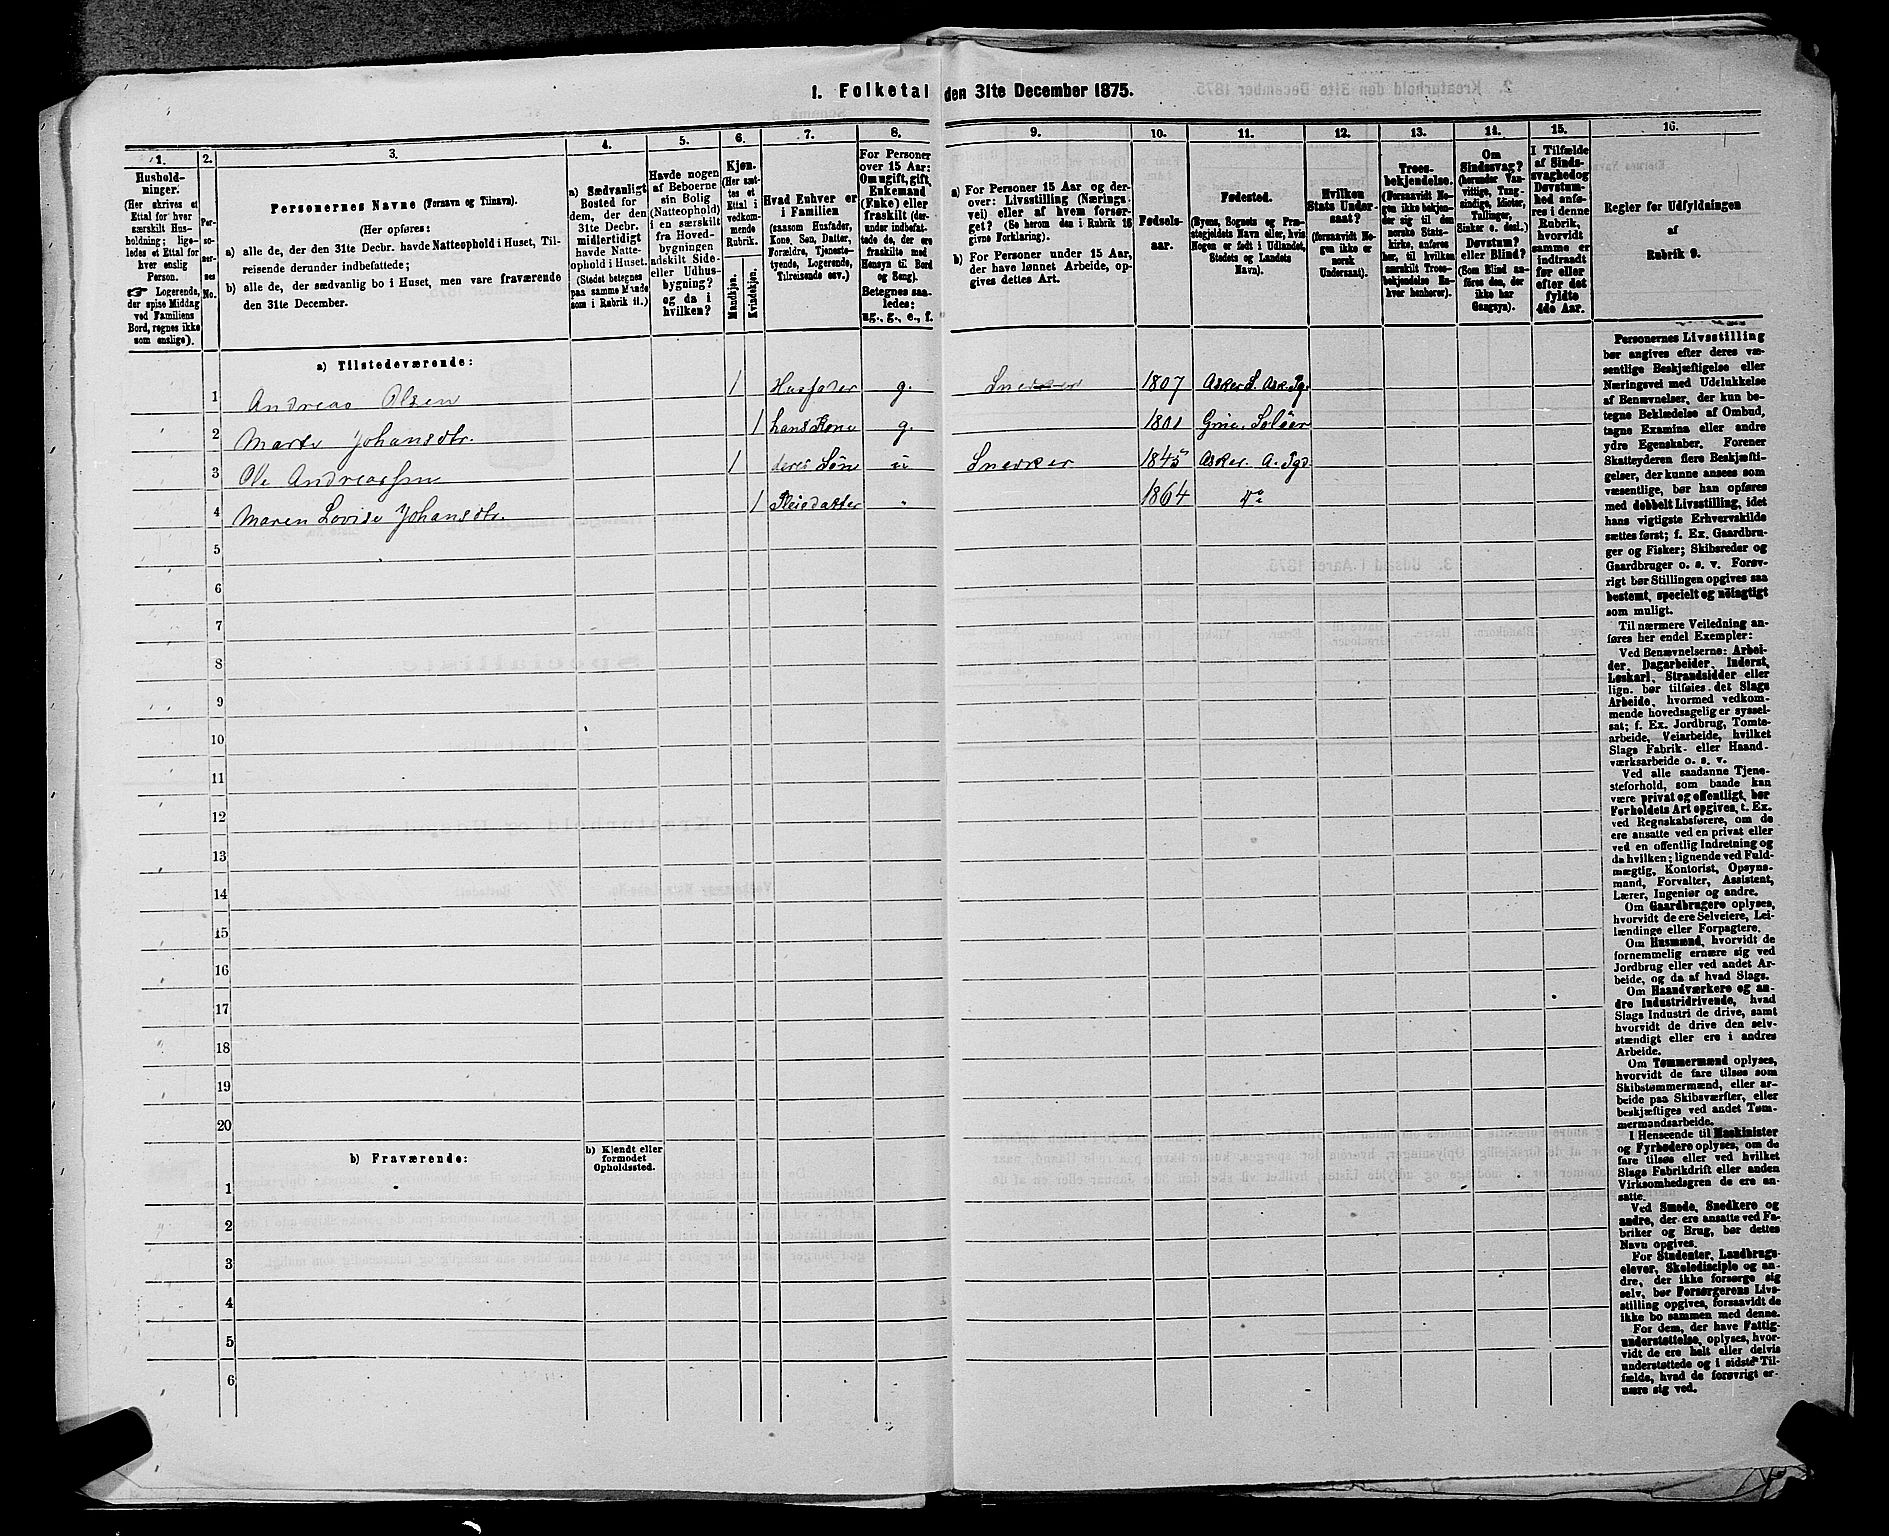 1. Folketal den 31te December 1875.
1.
2.
3.
4.
5.
6.
7.
8.
9.
10.
11.
12.
13.
14.
15.
16.
Hushold-
ninger.
(Her skrives et
Ettal for hver
særskilt Hus-
holdning; lige-
ledes et Ettal for
hver enslig
Person.
☞ Logerende,
der spise Middag
ved Familiens
Bord, regnes ikke
som enslige).
Per-
so-
ner-
nes
No.
Personernes Navne (Fornavn og Tilnavn).
(Her opføres:
a) alle de, der den 31te Decbr. havde Natteophold i Huset, Til-
reisende derunder indbefattede;
b) alle de, der sædvanlig bo i Huset, men vare fraværende
den 31te December.
a) Sædvanligt
Bosted for
dem, der den
31te Decbr.
midlertidigt
havde Natte-
ophold i Huset.
(Stedet betegnes
paa samme Maade
som i Rubrik 11.)
Havde nogen
af Beboerne
sin Bolig
(Natteophold)
i en særskilt
fra Hoved-
bygningen
adskilt Side-
eller Udhus-
bygning?
og da i
hvilken?
Kjøn.
(Her sæt-
tes et
Ettal i
vedkom-
mende
Rubrik.
Mandkjøn.
Kvindekjøn.
Hvad Enhver er
i Familien
(saasom Husfader,
Kone, Søn, Datter,
Forældre, Tjeneste-
tyende, Logerende,
Tilreisende osv.)
For Personer
over 15 Aar:
Om ugift, gift,
Enkemand
(Enke) eller
fraskilt (der-
under indbefat-
tede de, der ere
fraskilte med
Hensyn til Bord
og Seng).
Betegnes saa-
ledes:
ug., g., e., f.
a) For Personer 15 Aar og der-
over: Livsstilling (Nærings-
vei) eller af hvem forsør-
get? (Se herom den i Rubrik 16
givne Forklaring).
b) For Personer under 15 Aar,
der have lønnet Arbeide, op-
gives dettes Art.
Fødsels-
aar.
Fødested.
(Byens, Sognets og Præ-
stegjeldets Navn eller, hvis
Nogen er født i Udlandet,
Stedets og Landets
Navn).
Hvilken
Stats Under-
saat?
(forsaavidt No-
gen ikke er
norsk
Undersaat).
Troes-
bekjendelse.
(Forsaavidt No-
gen ikke bekjen-
der sig til den
norske Stats-
kirke, anføres
her, til hvilken
særskilt Troes-
bekjendelse En-
hver henhører).
Om
Sindssvag?
(herunder Van-
vittige, Tung-
sindige, Idioter,
Tullinger,
Sinker o. desl.)
Døvstum?
eller Blind?
(Som Blind an-
føres den, der
ikke har
Gangsyn).
I Tilfælde
af Sinds-
svaghed og
Døvstum-
hed anfø-
res i denne
Rubrik,
hvorvidt
samme er
indtraadt
før eller
efter det
fyldte
4de Aar.
Regler for Udfyldningen
af
Rubrik 9.
a) Tilstedeværende:
1 Andreas Olsen 1 Husfader g. Snedker 1807 Asker S. Ask. Pg.
2 Marte Johansdtr. 1 hans Kone g. 1801 Grue. Solöer
3 Ole Andreassen 1 deres Søn u Snedker 1845 Asker. A. Pgd
4 Maren Lovise Johansdtr. 1 Pleiedatter " 1864 do
5
6
7
8
9
10
11
12
13
14
15
16
17
18
19
20
b) Fraværende:
b) Kjendt eller
formodet
Opholdssted.
1
2
3
4
5
6
Personernes Livsstilling
bør angives efter deres væ-
sentlige Beskjæftigelse eller
Næringsvei med Udelukkelse
af Benævnelser, der kun be-
tegne Beklædelse af Ombud,
tagne Examina eller andre
ydre Egenskaber. Forener
Skatteyderen flere Beskjæfti-
gelser, der kunne ansees som
væsentlige, bør han opføres
med dobbelt Livsstilling, idet
hans vigtigste Erhvervskilde
sættes først; f. Ex. Gaardbru-
ger og Fisker; Skibsreder og
Gaardbruger o. s. v. Forøv-
rigt bør Stillingen opgives saa
bestemt, specielt og nøiagtigt
som muligt.
Til nærmere Veiledning an-
føres her endel Exempler:
Ved Benævnelserne: Arbei-
der, Dagarbeider, Inderst,
Løskarl, Strandsidder eller
lign. bør tilføies det Slags
Arbeide, hvormed vedkom-
mende hovedsagelig er syssel-
sat; f. Ex. Jordbrug, Tomte-
arbeide, Veiarbeide, hvilket
Slags Fabrik- eller Haand-
værksarbeide o. s. v.
Ved alle saadanne Tjene-
steforhold, som baade kan
være privat og offentligt, bør
Forholdets Art opgives, t. Ex.
ved Regnskabsførere, om de
ere ansatte ved en privat eller
ved en offentlig Indretning og
da hvilken; lignende ved Fuld-
mægtig, Kontorist, Opsyns-
mand, Forvalter, Assistent,
Lærer, Ingeniør og andre.
Om Gaardbrugere oplyses,
hvorvidt de ere Selveiere, Lei-
lændinge eller Forpagtere.
Om Husmænd, hvorvidt de
fornemmelig ernære sig ved
Jordbrug eller ved andet Ar-
beide, og da af hvad Slags.
Om Haandværkere og an-
dre Industridrivende, hvad
Slags Industri de drive, samt
hvorvidt de drive den selv-
stændigt eller ere i andres
Arbeide.
Om Tømmermænd oplyses,
hvorvidt de fare tilsøs som
Skibstømmermænd, eller ar-
beide paa Skibsværfter, eller
beskjæftiges ved andet Tøm-
mermandsarbeide.
I Henseende til Maskinister
og Fyrbødere oplyses, om de
fare tilsøs eller ved hvilket
Slags Fabrikdrift eller anden
Virksomhedsgren de ere an-
satte.
Ved Smede, Snedkere og
andre, der ere ansatte ved Fa-
briker og Brug, bør dettes
Navn opgives.
For Studenter, Landbrugs-
elever, Skoledisciple og an-
dre, der ikke forsørge sig
selv, bør Forsørgerens Livs-
stilling opgives, forsaavidt de
ikke bo sammen med denne.
For dem, der have Fattig-
understøttelse, oplyses, hvor-
vidt de ere helt eller delvis
understøttede og i sidste Til-
fælde, hvad de forøvrigt er-
nære sig ved.